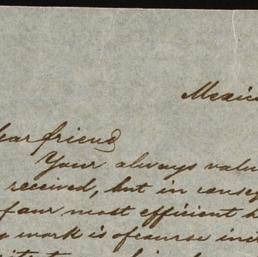 Mexico
ear friend
Your always valu
received, but in conseq
f our most efficient h
work is of course inc